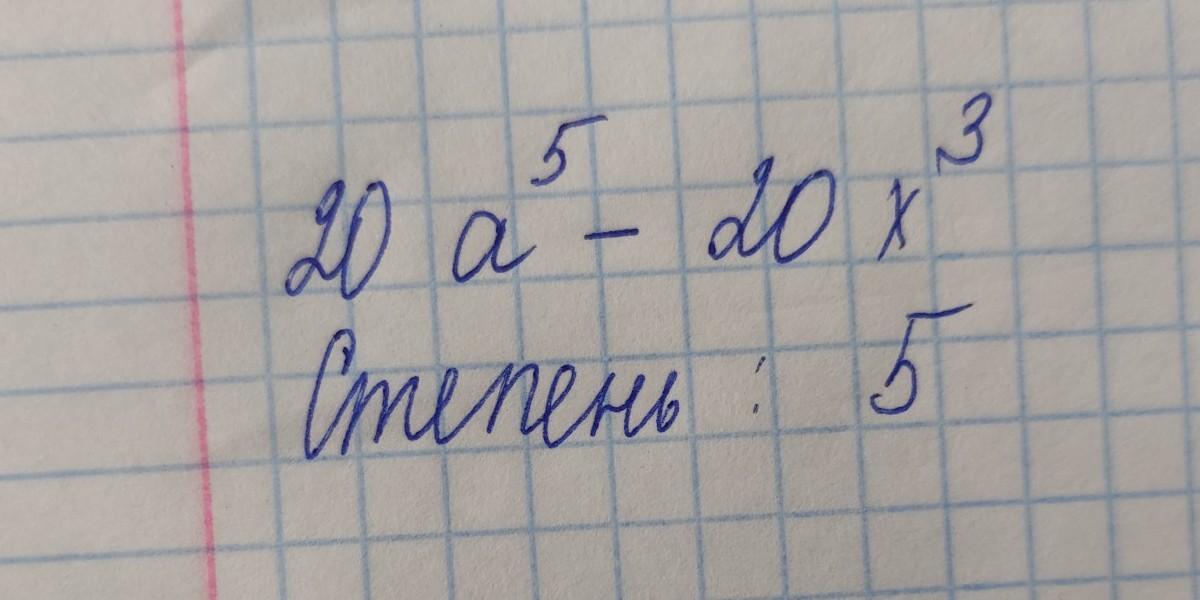 20 a⁵ - 20 x³
Степень : 5